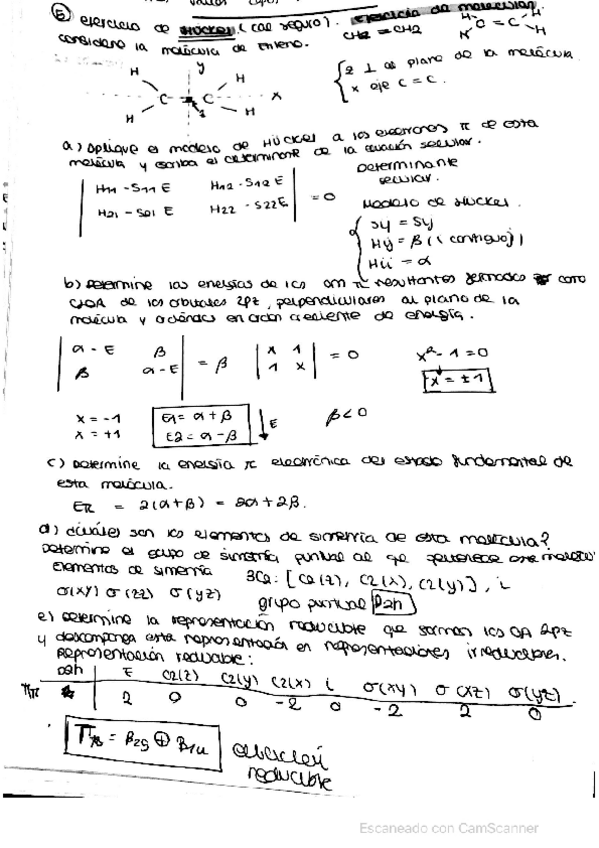 5) ejercicio de Hückel. (cae seguro). ejercicio de molecular.
considere la molécula de Etileno. CH2 = CH2
H H C = C H H
H y H
C C x
H H
{ z ⊥ al plano de la molécula
x eje C = C.
a) Aplique el modelo de Hückel a los electrones π de esta
molécula y escriba el determinante de la ecuación secular.
| H11 - S11 E H12 - S12 E |
| H21 - S21 E H22 - S22 E | = 0
Determinante
secular.
Modelo de Hückel.
Sij = δij
Hij = β (i contiguo j)
Hii = α
b) Determine las energías de los OM π resultantes formados como
CLOA de los orbitales 2pz, perpendiculares al plano de la
molécula y ordénelas en orden creciente de energía.
| α - E β |
| β α - E | = β | x 1 |
| 1 x | = 0
x² - 1 = 0
x = ±1
x = -1 E1 = α + β
x = +1 E2 = α - β
↓ E β < 0
c) Determine la energía π electrónica del estado fundamental de
esta molécula.
Eπ = 2(α + β) = 2α + 2β.
d) ¿Cuáles son los elementos de simetría de esta molécula?
Determine el grupo de simetría puntual al que pertenece esta molécula
Elementos de simetría 3C2: [C2(z), C2(x), C2(y)], i
σ(xy) σ(xz) σ(yz) grupo puntual D2h
e) Determine la representación reducible que forman los OA 2pz
y descomponga esta representación en representaciones irreducibles.
Representación reducible:
D2h E C2(z) C2(y) C2(x) i σ(xy) σ(xz) σ(yz)
Γπ 2 0 0 -2 0 -2 2 0
Γπ = B2g ⊕ B1u
reducible
Escaneado con CamScanner